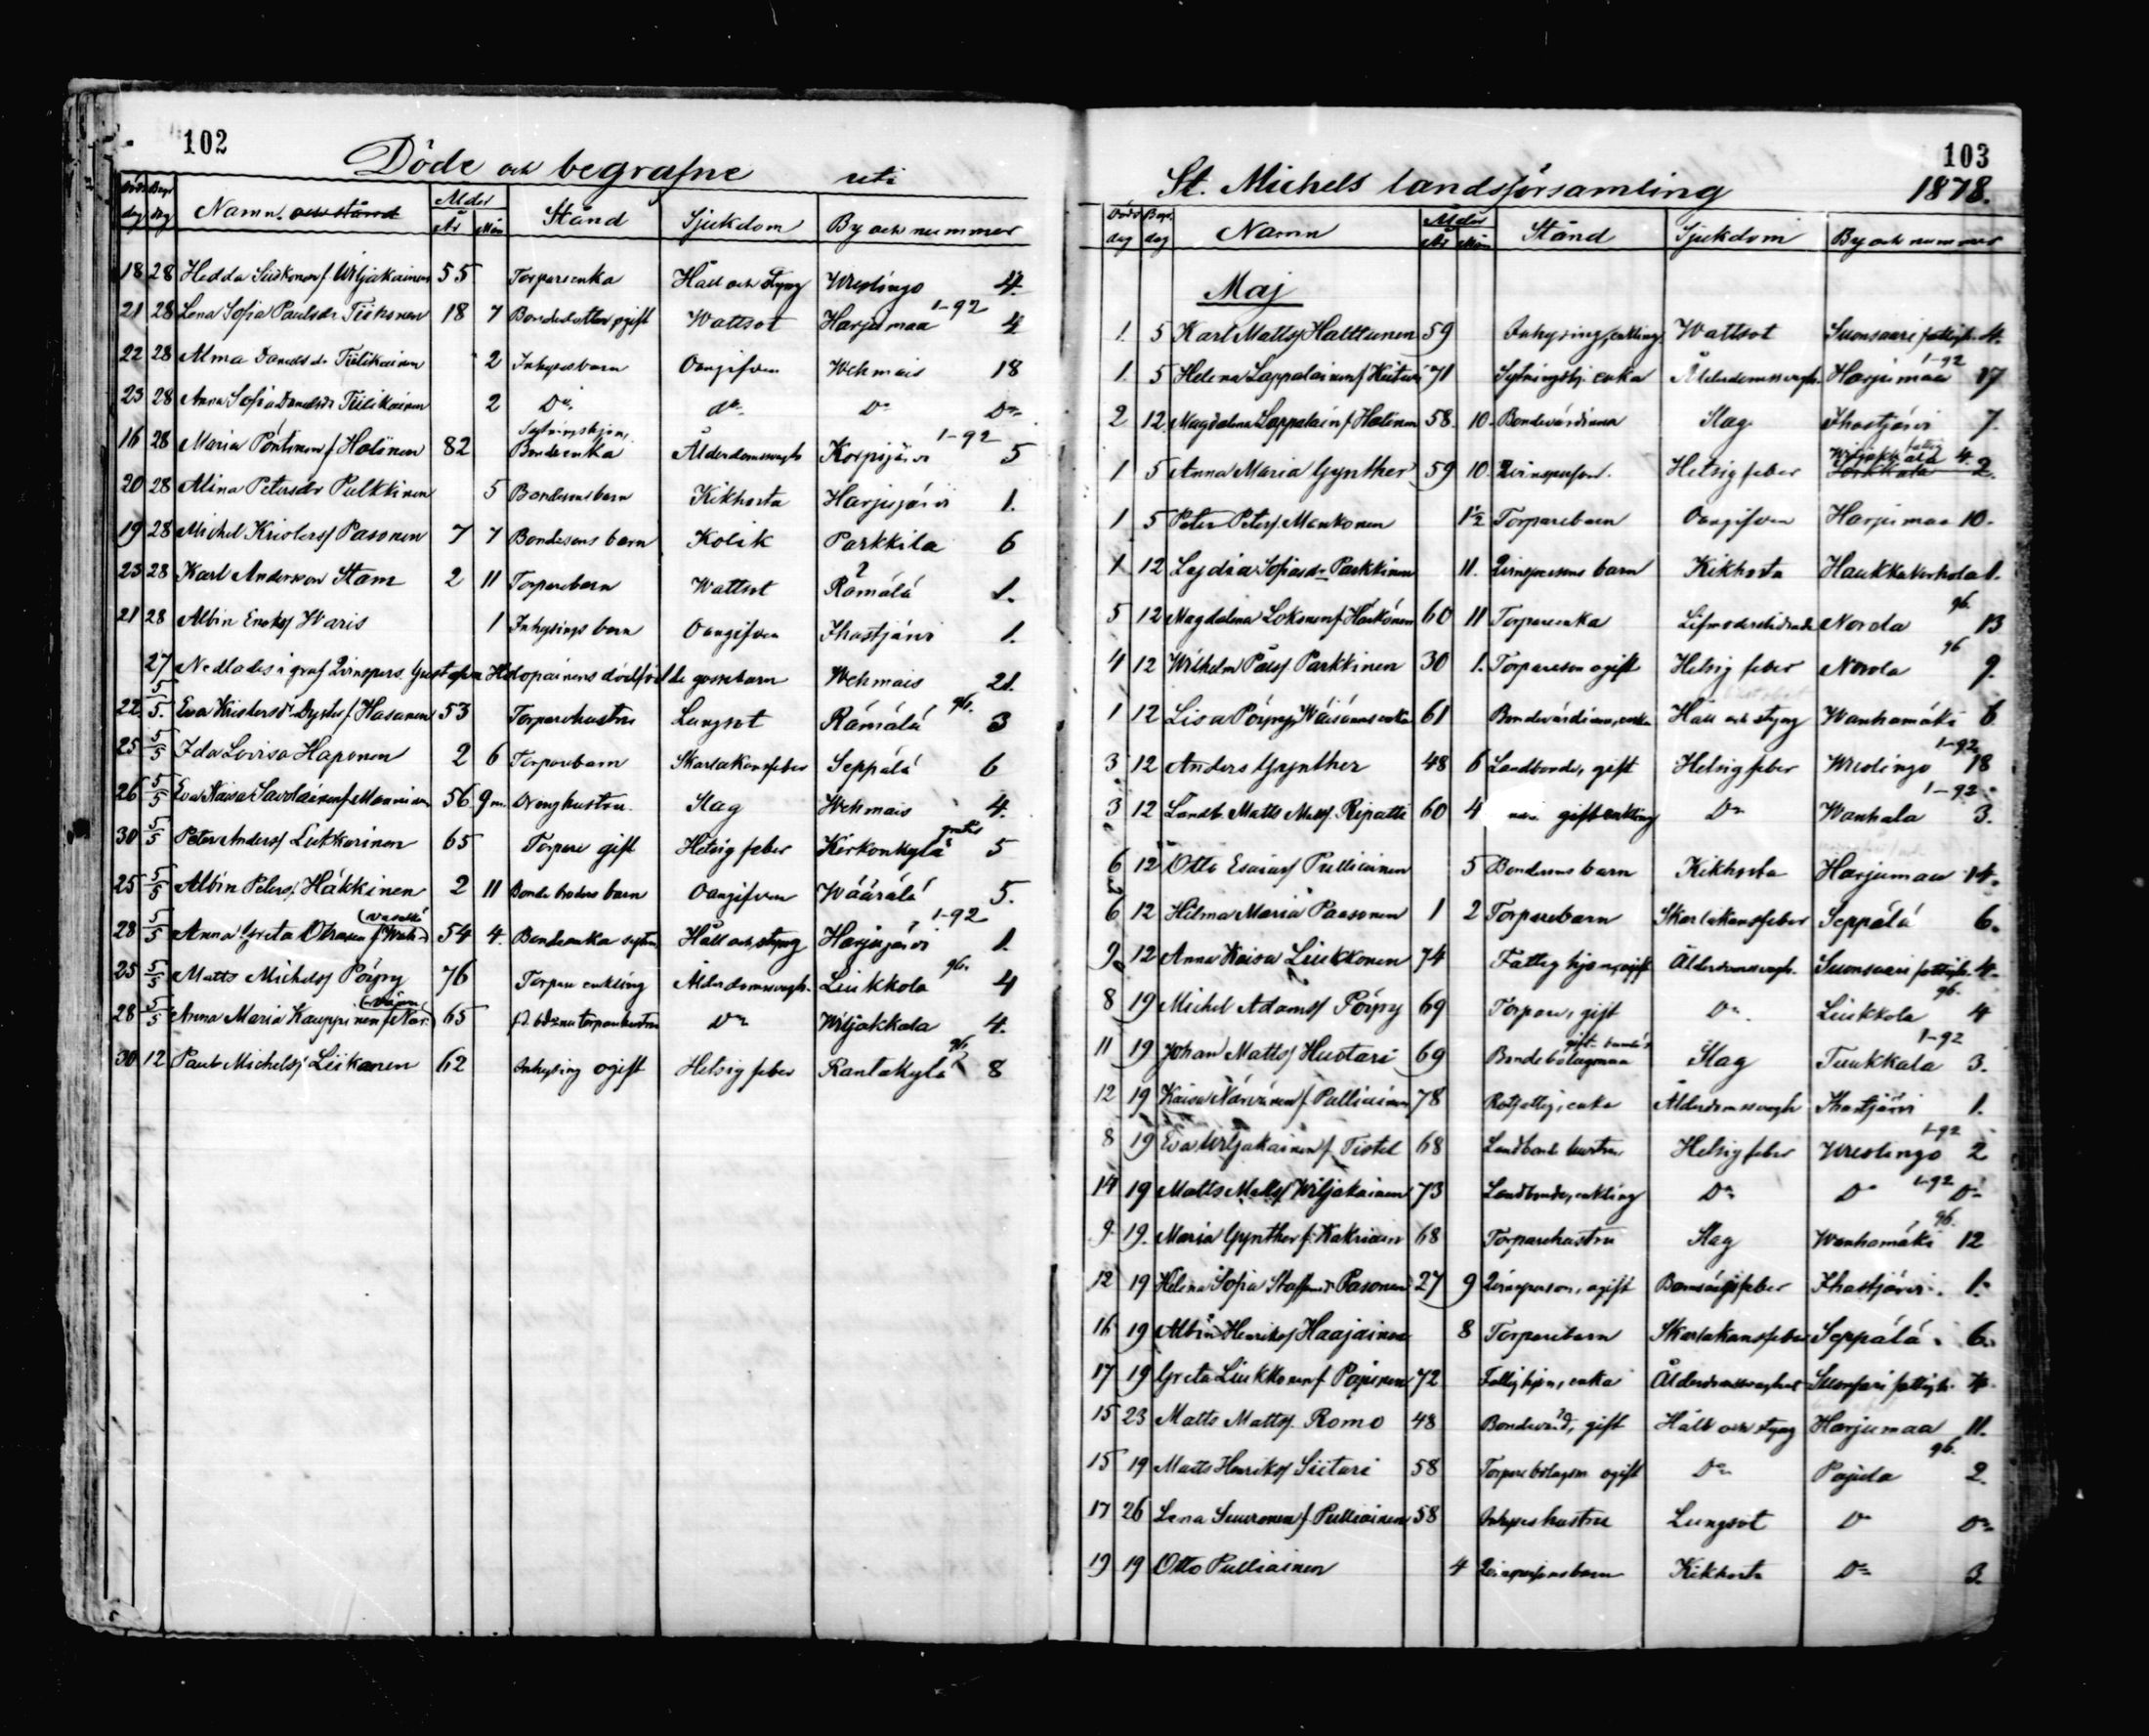 102
Döde och begrafne uti
Döds dag Begr dag Namn och stånd Ålder År Mån Stånd Sjukdom By och nummer
18 28 Hedda f. Wiljakainen 55 Torpareenka Håll och styng Wreolingo 4.
21 28 Lena Sofia Paulsdr Tiikonen 18 7 Bondedotter ogift Wattsot Harjumaa 1-92 4
22 28 Alma Danelsdr Tiilikainen 2 Inhysesbarn Oangifven Wehmais 18
23 28 Anna Sofia Danelsdr Tiilikainen 2 Do do Do Do
16 28 Maria Pöntinen f Holinen 82 Sytningshjon, Bondeenka Ålderdomssvagh Korpijärvi 1-92 5
20 28 Alina Petersdr Pulkkinen 5 Bondesons barn Kikhosta Harjujärvi 1.
19 28 Michel Kristerss Pasonen 7 7 Bondesons barn Kolik Parkkila 6
23 28 Karl Andersson Stam 2 11 Torparebarn Wattsot Rämälä 1.
21 28 Albin Enokss Waris 1 Inhysings barn Oangifven Ihastjärvi 1.
27 Nedlades i graf Qvinspers. Gustafva Holopainens dödfödde gossebarn Wehmais 21.
22 5/5. Eva Kristersdr Dyster f Hasanen 53 Torparehustru Lungsot Rämälä 96. 3
25 5/5 Ida Lovisa Haponen 2 6 Torparebarn Skarlakansfeber Seppälä 6
26 5/5 Eva Kaisa Savolainen f Manninen 56 9 m. Drenghustru Slag Wehmais 4.
30 5/5 Peter Anderss Liukkarinen 65 Torpare gift Hetsig feber Kirkonkylä 5
25 5/5 Albin Peterss Häkkinen 2 11 Bonde broders barn Oangifven Wäärälä 5.
28 5/5 Anna Greta Otranen 54 4. Bondeenka Håll och styng Harjujärvi 1-92 1.
25 5/5 Matts Michelss Pöyry 76 Torpare enkling Ålderdomssvagh. Liukkola 96. 4
28 5/5 Anna Maria Kauppinen 65 Do Wiljakkala 4.
30 12 Paul Michelss Liikanen 62 Inhysing ogift Hetsig feber Rantakylä 96. 8
103
St. Michels landsförsamling 1878.
Döds dag Begr. dag Namn Ålder År Mån Stånd Sjukdom By och nummer
Maj
1. 5 Karl Mattss Halttunen 59 Inhysing, enkling Wattsot Suonsaari fattigh. 4.
1. 5 Helena Lappalainen f 71 Sytningshj. enka Ålderdomssvagh. Harjumaa 1-92 17
2 12 Magdalena Lappalain f Holinen 58. 10. Bondevärdinna Slag Ihastjärvi 7.
1 5 Anna Maria Gynther 59 10. Qvinsperson. Hetsig feber 4. 2.
1 5 Peter Peterss. Mankonen 1½ Torparebarn Oangifven Harjumaa 10.
1 12 Lydia Sofiasdr Parkkinen 11. Qvinspersons barn Kikhosta Haukkakorhola 1.
5 12 Magdalena Loksonen f Härkönen 60 11 Torpareenka Norola 96. 13
4 12 Wilhelm Pålss Parkkinen 30 1. Torpareson ogift Hetsig feber Norola 96 9.
1 12 Lisa Pöyry, Wäisänens enka 61 Bondevärdinna, enka Håll och styng Wanhamäki 6
3 12 Anders Gynther 48 6 Landbonde, gift Hetsig feber Wreolingo 1-92 18
3 12 Landb. Matts Matss. Ripatti 60 4 gift enkling Do Wanhala 1-92 3.
6 12 Otto Esaiass Pulliainen 5 Bondesons barn Kikhosta Harjumaa 14.
6 12 Hilma Maria Paasonen 1 2 Torparebarn Skarlakansfeber Seppälä 6.
9 12 Anna Kaisa Liukkonen 74 Fattighjon, ogift Ålderdomssvagh. Suonsaari fattigh. 4.
8 19 Michel Adamss Pöyry 69 Torpare, gift Do Liukkola 96. 4
11 19 Johan Mattss Hustari 69 Bonde bolagsman Slag Tuukkala 1-92 3.
12 19 Kaisa Närvänen f. Pulliainen 78 Rotfattig, enka Ålderdomssvagh Ihastjärvi 1.
8 19 Eva Wiljakainen f. Tistel 68 Landbonde hustru Hetsig feber Wreolingo 1-92 2
14 19 Matts Matss Wiljakainen 73 Landbonde, enkling Do Do 1-92 Do
9 19. Maria Gynther f. Kakriain 68 Torparehustru Slag Wanhamäki 96. 12
12 19 Helena Sofia Staffansdr Pasonen 27 9 Qvinsperson, ogift Barnsängsfeber Ihastjärvi 1.
16 19 Albin Henrikss Haajainen 8 Torparebarn Skarlakansfeber Seppälä 6.
17 19 Greta Liukkonen f Pajunen 72 Fattighjon, enka Ålderdomssvaghet Suonsari fattigh. 4
15 23 Matts Mattss. Romo 48 Bondevärd, gift Håll och styng Harjumaa 11.
15 19 Matts Henrikss Siitari 58 Torpare bolagsm ogift Do Pajula 96. 2.
17 26 Lena Suuronen f Pulliainen 58 Inhyses hustru Lungsot Do Do
19 19 Otto Pulliainen 4 Qvinspersons barn Kikhosta Do 3.